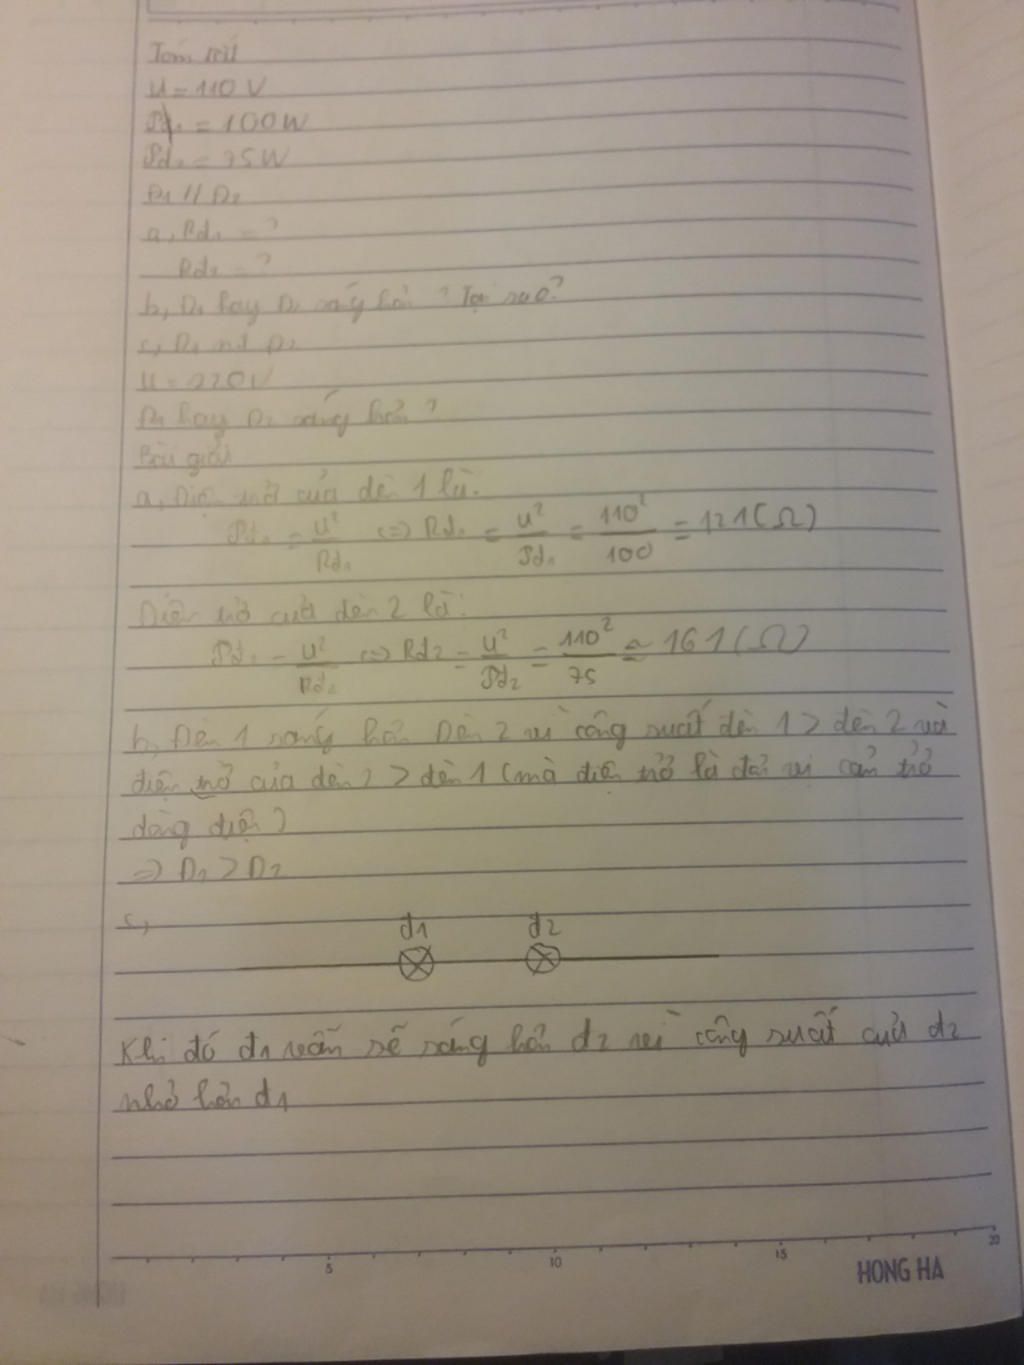 Tóm tắt
U = 110 V
Pđ₁ = 100W
Pđ₂ = 75W
Đ₁ // Đ₂
a, Rđ₁ = ?
Rđ₂ = ?
b, Đ₁ hay Đ₂ sáng hơn ? Tại sao?
c, Đ₁ nt Đ₂
U = 220V
Đ₁ hay Đ₂ sáng hơn ?
Bài giải
a, Điện trở của đèn 1 là:
Pđ₁ = U²/Rđ₁ <=> Rđ₁ = U²/Pđ₁ = 110²/100 = 121(Ω)
Điện trở của đèn 2 là:
Pđ₂ = U²/Rđ₂ <=> Rđ₂ = U²/Pđ₂ = 110²/75 ≈ 161(Ω)
b, Đèn 1 sáng hơn Đèn 2 vì công suất đèn 1 > đèn 2 và
điện trở của đèn 2 > đèn 1 (mà điện trở là đơn vị cản trở
dòng điện)
=> Đ₁ > Đ₂
c,
đ1 đ2
Khi đó đ₁ vẫn sẽ sáng hơn đ₂ vì công suất của đ₂
nhỏ hơn đ₁
5 10 15 20
HONG HA